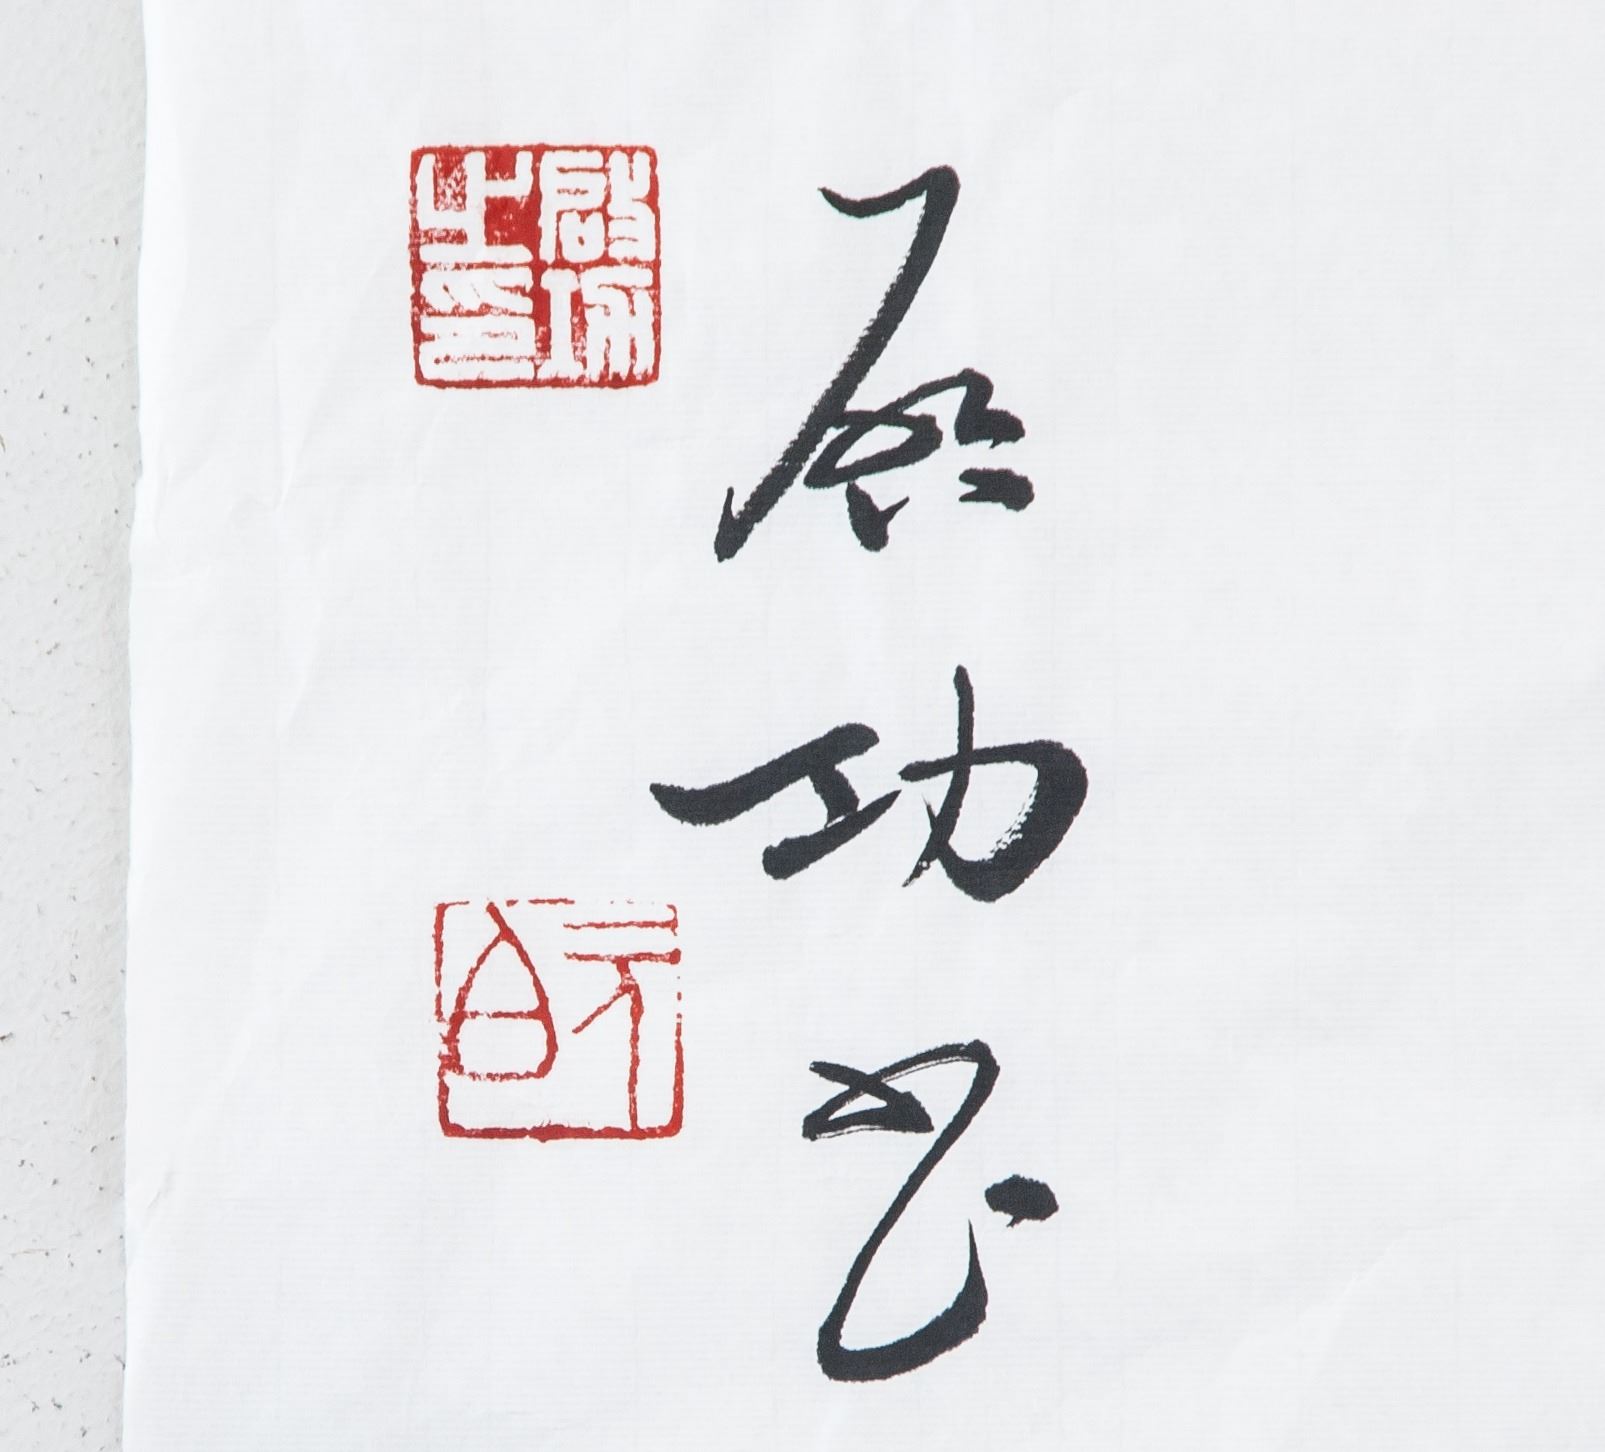 启功书
啟功
之印
元白